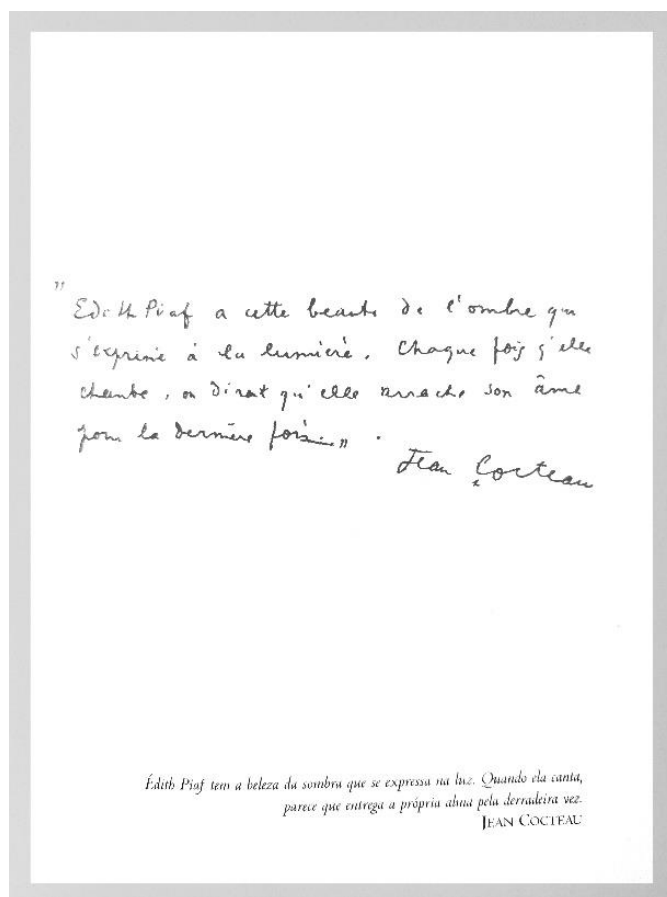 "Edith Piaf a cette beauté de l'ombre qui
s'exprime à la lumière. Chaque fois q'elle
chante, on dirait qu'elle arrache son âme
pour la dernière fois..." .
Jean Cocteau
Édith Piaf tem a beleza da sombra que se expressa na luz. Quando ela canta,
parece que entrega a própria alma pela derradeira vez.
JEAN COCTEAU